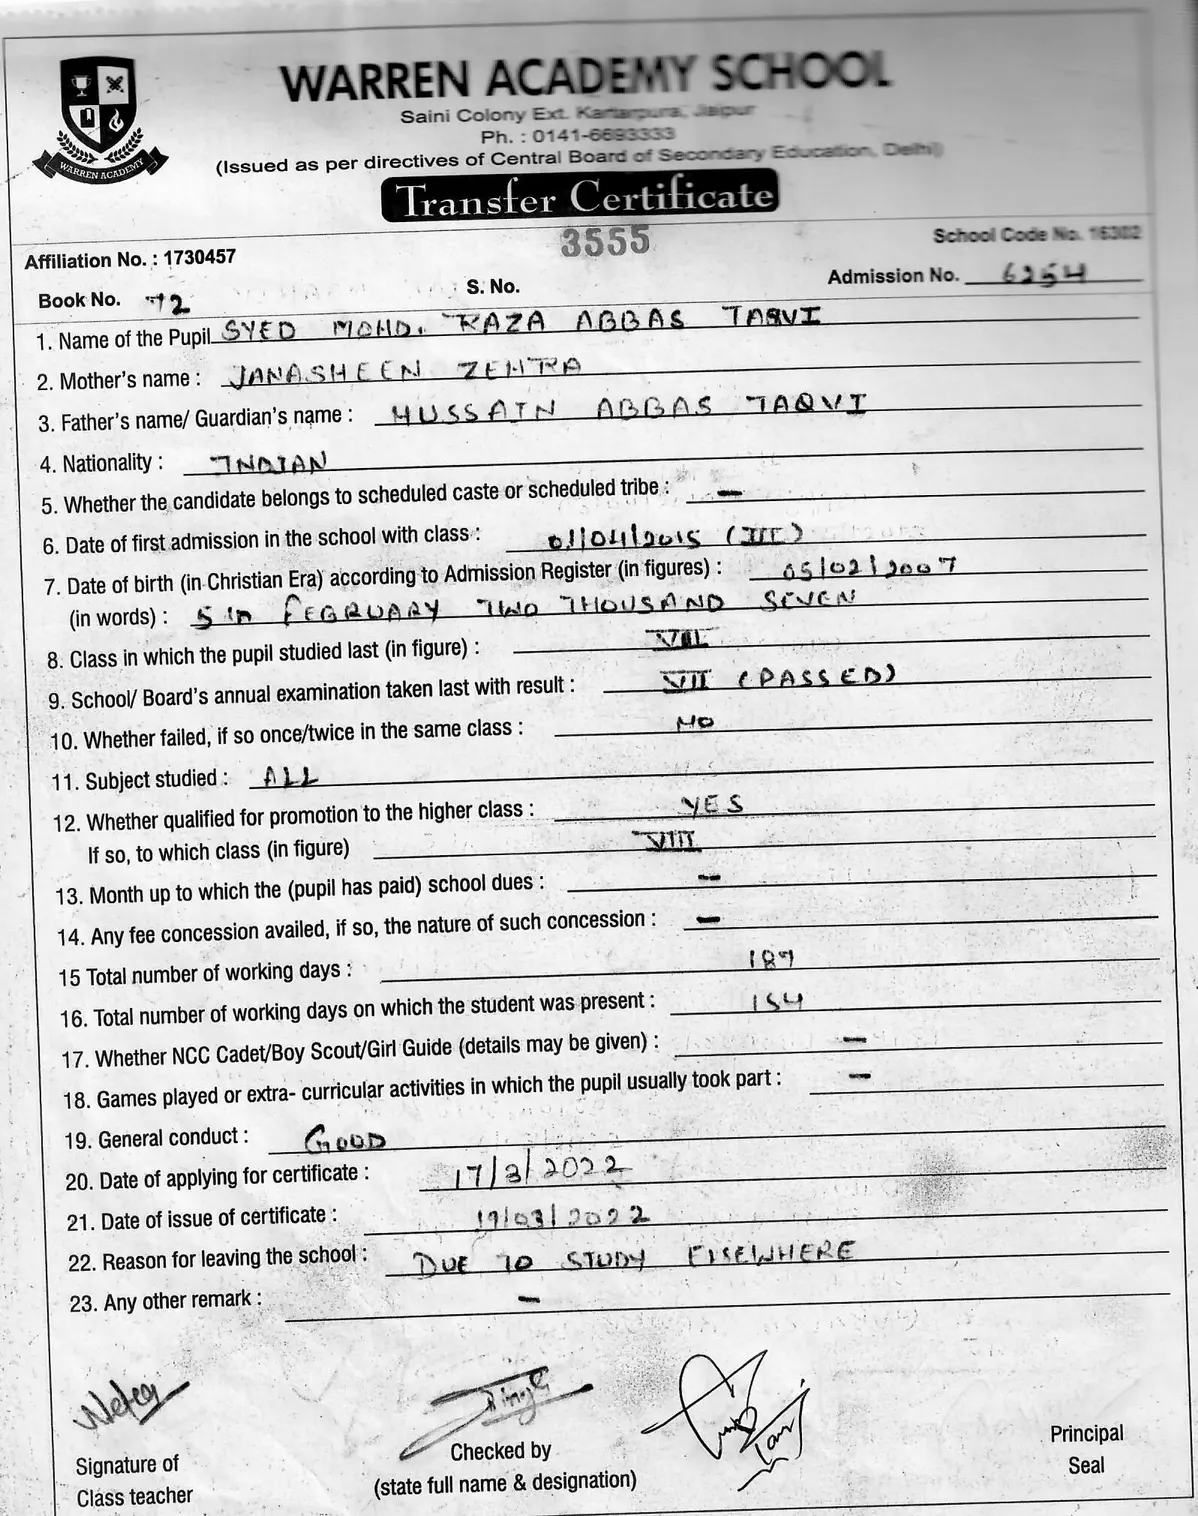 WARREN ACADEMY SCHOOL
Saini Colony Ext. Kartarpura, Jaipur
Ph. : 0141-6693333
(Issued as per directives of Central Board of Secondary Education, Delhi)
WARREN ACADEMY
Transfer Certificate
3555
School Code No. 16302
Affiliation No. : 1730457
Admission No. 6254
Book No. 72 S. No.
1. Name of the Pupil SYED MOHD. RAZA ABBAS TAQVI
2. Mother's name : JANASHEEN ZEHRA
3. Father's name/ Guardian's name : HUSSAIN ABBAS TAQVI
4. Nationality : INDIAN
5. Whether the candidate belongs to scheduled caste or scheduled tribe : –
6. Date of first admission in the school with class : 01/04/2015 (III)
7. Date of birth (in Christian Era) according to Admission Register (in figures) : 05/02/2007
(in words) : 5th FEBRUARY TWO THOUSAND SEVEN
8. Class in which the pupil studied last (in figure) :
9. School/ Board's annual examination taken last with result : VII (PASSED)
10. Whether failed, if so once/twice in the same class : NO
11. Subject studied : ALL
12. Whether qualified for promotion to the higher class : YES
If so, to which class (in figure) VIII
13. Month up to which the (pupil has paid) school dues : –
14. Any fee concession availed, if so, the nature of such concession : –
15 Total number of working days : 187
16. Total number of working days on which the student was present : 154
17. Whether NCC Cadet/Boy Scout/Girl Guide (details may be given) : –
18. Games played or extra- curricular activities in which the pupil usually took part : –
19. General conduct : GOOD
20. Date of applying for certificate : 17/3/2022
21. Date of issue of certificate : 19/03/2022
22. Reason for leaving the school : DUE TO STUDY ELSEWHERE
23. Any other remark : –
Signature of
Class teacher
Checked by
(state full name & designation)
Principal
Seal